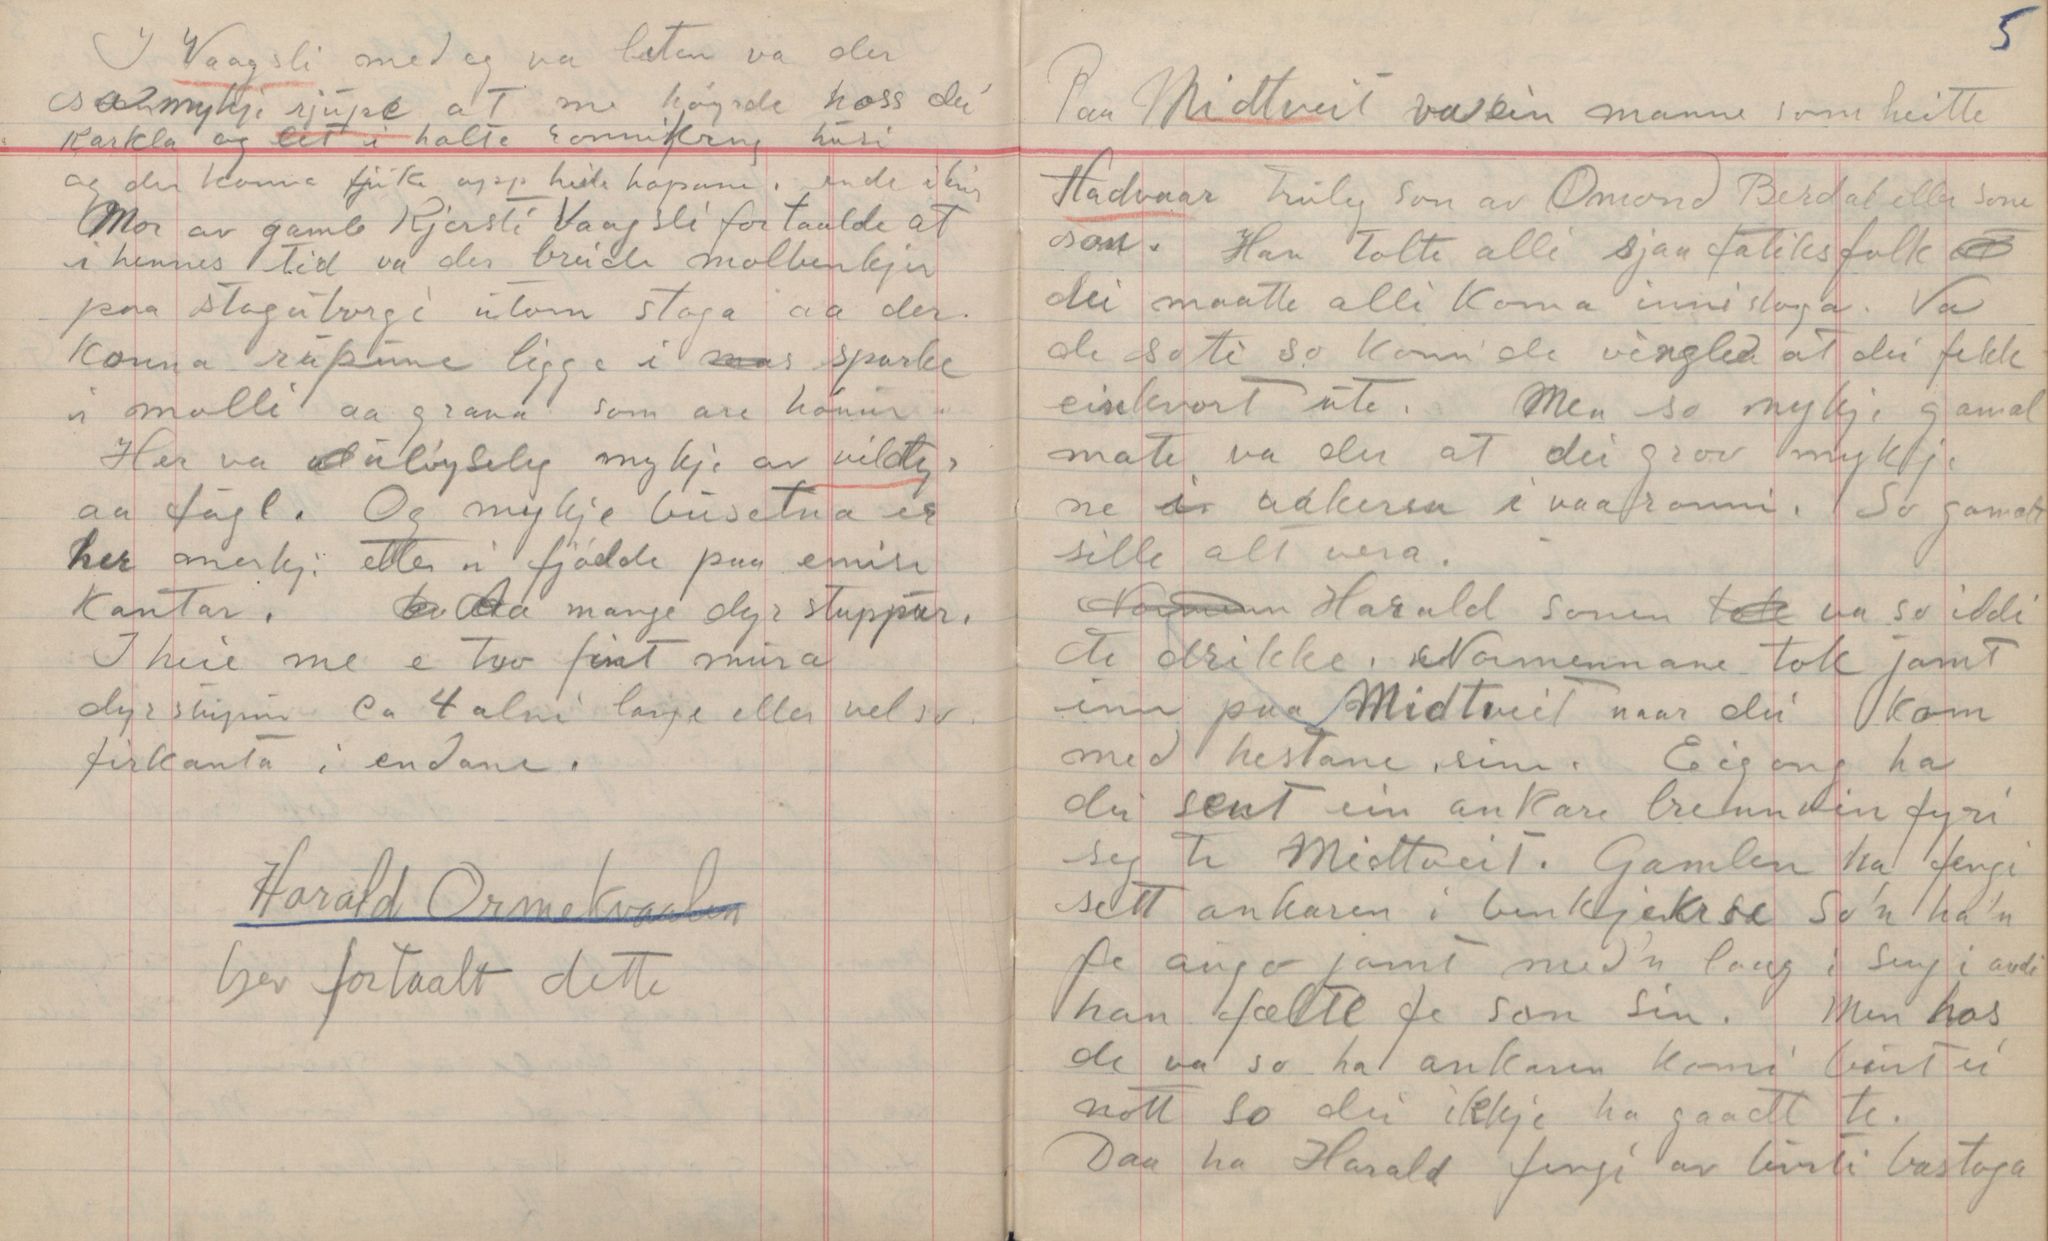 I Vaagsli med eg va liten va der
so mykje rjupe at me høyrde hoss dei
karkla og let i holte ronnikring husi
og der konne fjuke opp heile hopane.
Mor av gamle Kjersti Vaagsli fortaalde at
i hennes tid va der breide moldbenkjir
paa stoguborgi utom stoga aa der
konna rupune ligge i sparke
i molli aa grava som are hønur.
Her va uløyseleg mykje av vildty,
aa fugl. Og mykje busetna er
her merkji etter i fjødde paa emise
kantar. Aa mange dyrstuppur.
I heie me e tvo fint mura
dyrstupur ca 4 alni lange eller vel so
firkanta i endane.
Harald Ormekvaalen
hev fortaalt dette
5
Paa Midtveit va ein manne som heitte
Hadvaar truleg son av Omond Berdal eller sone
son. Han tolte alli sjaa fatiksfolk
dei maatte alli koma inn i stoga. Va
de so ti so konn' de vingled at dei fekk
einkvort ute. Men so mykje gamal
mate va der at dei grov mykje
ne i aakeren i vaaronni. So gamalt
sille alt vera.
Harald sonen va so iddi
te drikke. Normennane tok jamt
inn paa Midtveit naar dei kom
med hestane sine. Eigong ha
dei sent ein ankare brennvin fyri
seg te Midtveit. Gamlen ha fengi
sett ankaren i benkjekrse So'n ha'n
fe augo jamt med'n laag i sengi avdi
han fælte fe son sin. Men hos
de va so ha ankaren komi burt ei
nott so dei ikkje ha gaadt te.
Daa ha Harald fengi av burti bastoga